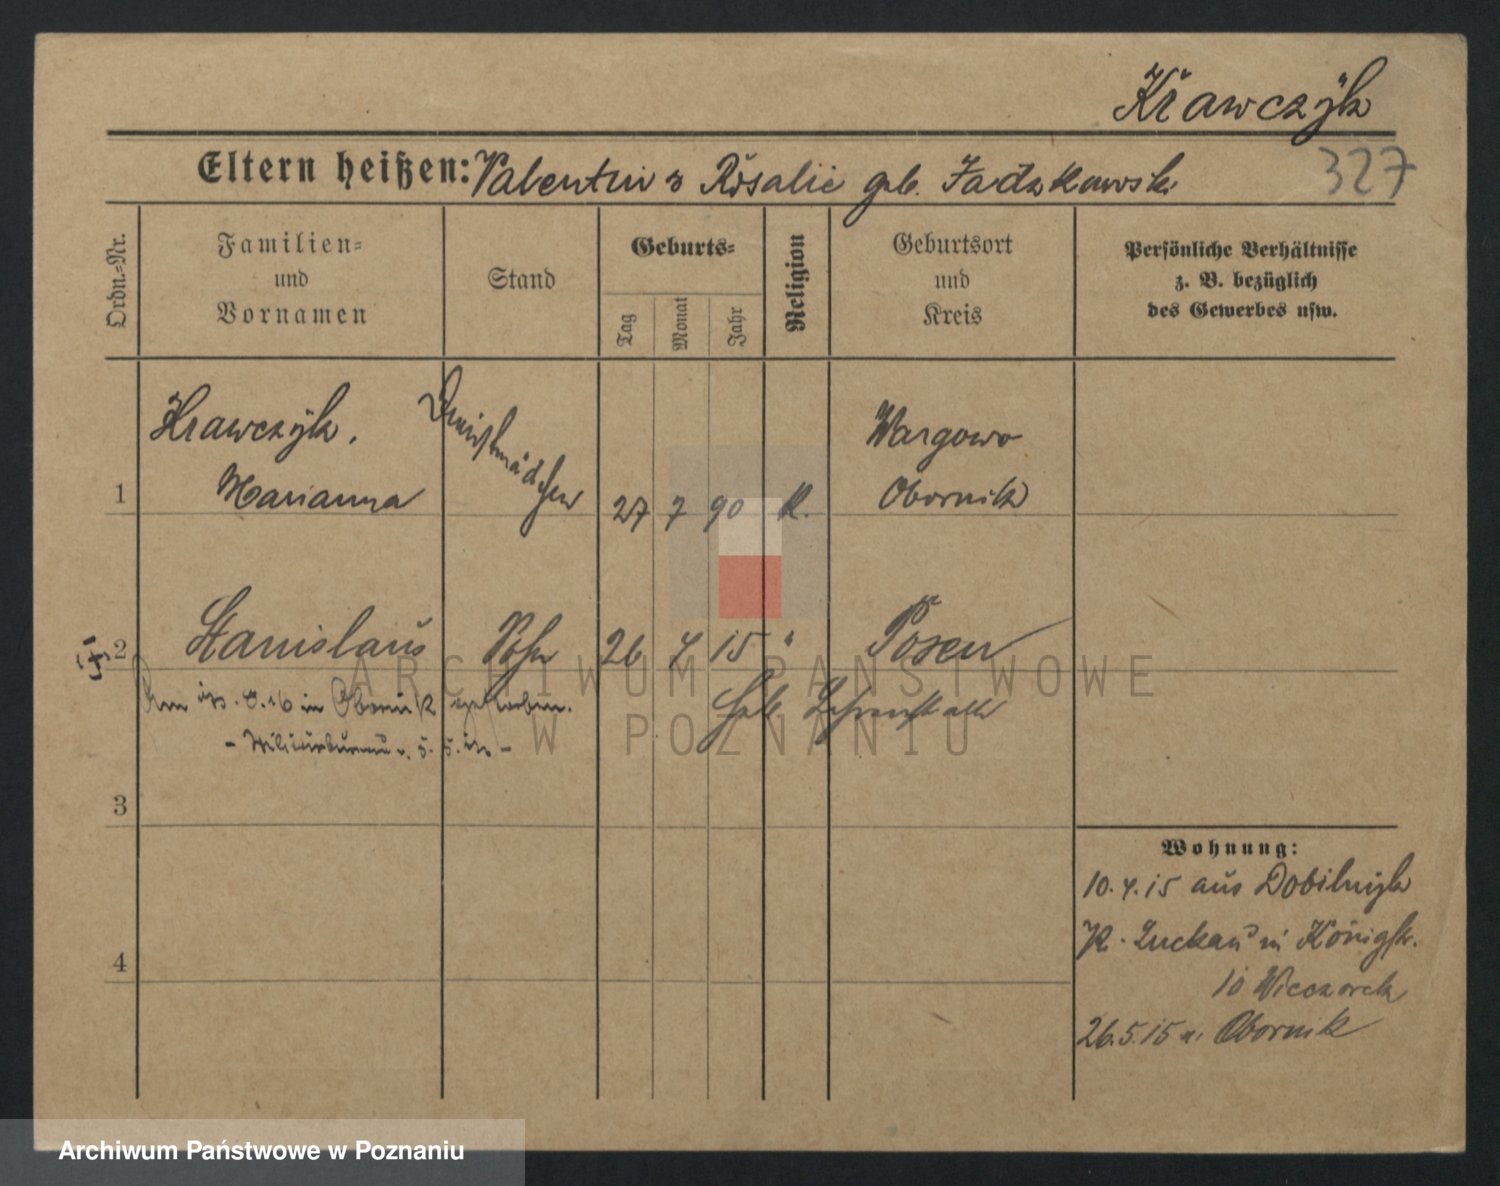 Krawczÿk
Eltern heißen: Valentin & Rosalie geb. Jadzkowski
327
Ordn.-Nr.
Familien-
und
Vornamen
Stand
Geburts-
Tag
Monat
Jahr
Religion
Geburtsort
und
Kreis
Persönliche Verhältnisse
z. B. bezüglich
des Gewerbes usw.
Krawczÿk,
Marianna
Dienstmädchen
1
27 7 90 K.
Wargowo
Obornik
2
Stanislaus
Sohn
26 4 15 "
Posen
Am in Obornik gestorben.
Geb.
3
4
Wohnung:
10.4.15 aus
K. Luckau in Königstr.
10 Wieczorek
26.5.15 n. Obornik
ARCHIWUM PAŃSTWOWE
W POZNANIU
Archiwum Państwowe w Poznaniu